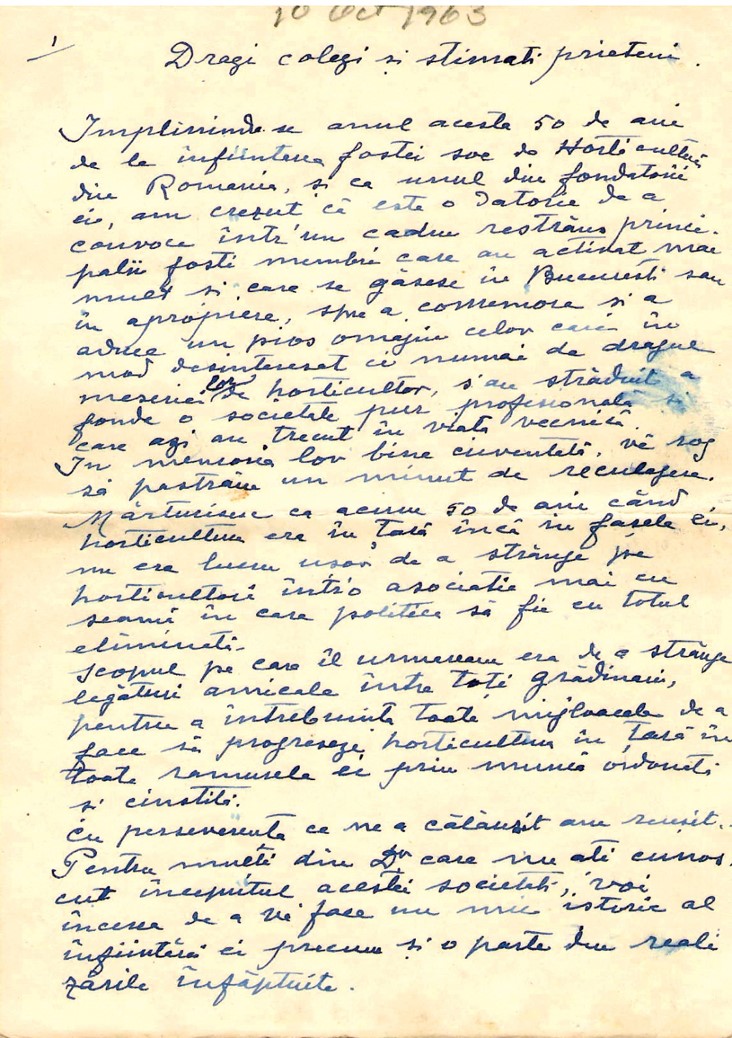 10 Oct 1963
1
Dragi colegi și stimati prieteni.
Implinindu-se anul acesta 50 de ani
de la înființarea fostei soc de Horticultură
din Romania, și ca unul din fondatorii
ei, am crezut că este o datorie de a
convoca într'un cadru restrâns princi-
palii fosti membri care au activat mai
mult si care se găsesc în Bucuresti sau
în apropiere, spre a comemora si a
aduce un pios omagiu celor cari în
mod desinteresat ci numai de dragul
meseriei lor de horticultor, s'au străduit a
fonda o societate pur profesională si
care azi au trecut în viata vecnică.
In memoria lor bine cuventată, vă rog
să pastrăm un minut de reculegere.
Mărturisesc ca acum 50 de ani când
horticultura era în țară încă in fașele ei,
nu era lucru usor de a strânge pe
horticultori într'o asociatie mai cu
seamă în care politica să fie cu totul
eliminată.
Scopul pe care îl urmaream era de a strânge
legături amicale între toți grădinarii,
pentru a întrebuinta toate mijloacele de a
face să progreseze horticultura în țară în
toate ramurele ei prin muncă ordonată
si cinstită.
Cu perseverenta ce ne a călăuzit am reusit.
Pentru multi din Dv care nu ati cunos-
cut începutul acestei societati, voi
încerca de a vă face un mic istoric al
înființării ei precum și o parte din reali
zările înfăptuite.